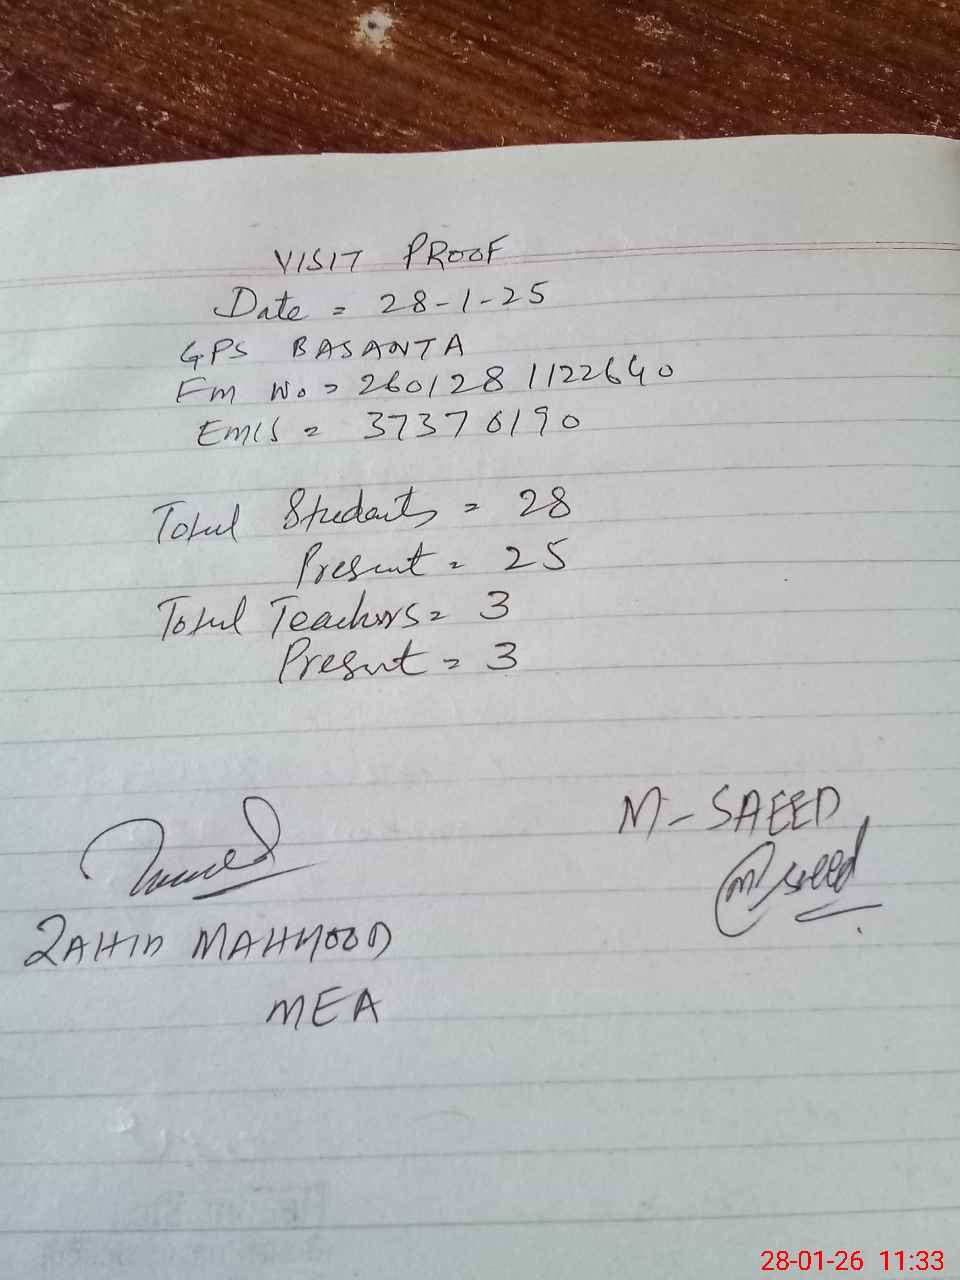 VISIT PROOF
Date = 28-1-25
GPS BASANTA
Fm No = 260128 1122640
EMIS = 37376190
Total Students = 28
Present = 25
Total Teachers = 3
Present = 3
M-SAEED
M saeed
ZAHID MAHMOOD
MEA
28-01-26 11:33